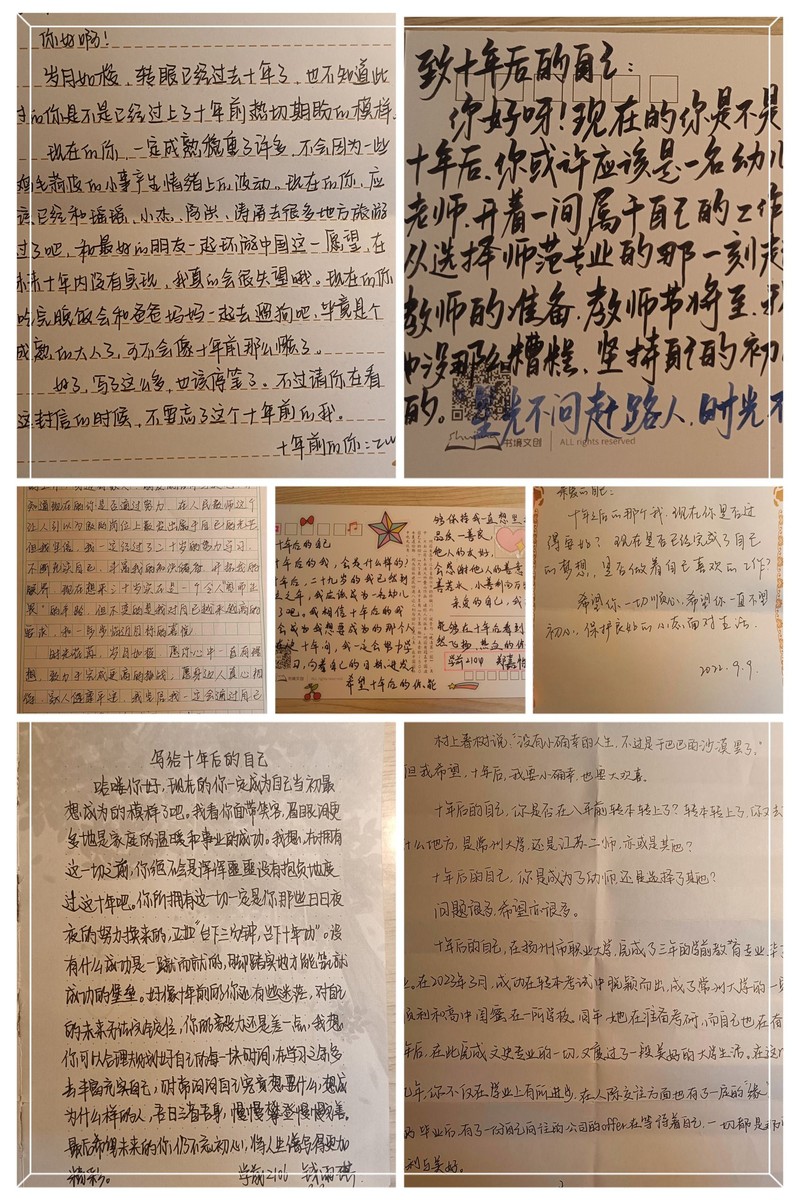 你好啊!
岁月如梭,转眼已经过去十年了,也不知道此
过的你是不是已经过上了十年前热切期盼的模样.
现在的你,一定成熟稳重了许多,不会因为一些
鸡毛蒜皮的小事产生情绪上的波动。现在的你,应
该已经和瑶瑶、小杰、
涛涛去很多地方旅游
过了吧,和最好的朋友一起环游中国这一愿望,在
未来十年内没有实现,我真的会很失望哦。现在的你
吃完晚饭会和爸爸妈妈一起去遛狗吧,毕竟是个
成熟的大人了,可不会像十年前那么懒了。
好了,写了这么多,也该停笔了。不过请你在看
这封信的时候,不要忘了这个十年前的我。
十年前的你:
致十年后的自己:
你好呀!现在的你是不是
十年后,你或许应该是一名幼儿
老师,开着一间属于自己的工作
从选择师范专业的那一刻
教师的准备,教师节将至,
没那么糟糕,坚持自己的初
的。星光不问赶路人,时光不
书境文创 ALL rights reserved
知道现在的你是否通过努力,在人民教师这个
让人引以为傲的岗位上散发出属于自己的光芒
但我坚信,我一定经过了二十岁的努力学习
不断充实自己,丰富我的知识储备,开拓我的
眼界。
的年龄,但不变的是我对自己越来越高的
要求,和一步步迈向目标的喜悦
十年后的自己
年后,二十九岁的我已然
之年,我应该成为一名幼儿
了吧。我相信十年后的我
会成为我想要成为的那个人
这十年间,我一定会努力学
习,向着自己的目标进发
希望十年后的你,能
能保持我一直想坚
品质—善良
他人的友好,
会感谢他人的善意
善若水,小善利而万
亲爱的自己,我
能够在十年后看到
学前2104
亲爱的自己:
十年之后的那个我,现在你是否过
得安好?现在是否已经完成了自己
的梦想,是否做着自己喜欢的工作?
希望你一切顺心,希望你一直不忘
初心,保护良好的心态面对生活.
2022.9.9.
写给十年后的自己
哈喽你好,现在的你一定成为自己当初最
想成为的模样了吧。我看你面带笑容,眉眼间更
多地是家庭的温暖和事业的成功。我想,在拥有
这一切之前,你绝不会是浑浑噩噩没有抱负地度
过这十年吧。你所拥有这一切一定是你那些日日夜
夜的努力换来的,正如“台下三分钟,台下十年功”。没
有什么成功是一蹴而就的,脚踏实地才能筑就
成功的堡垒。好像十年前的你还有些迷茫,对自己
的未来无法估定位,你的毅力还是差一点,我想
你可以合理规划好自己的每一块时间,在学习之余多
去丰富充实自己,时常询问自己究竟想要什么,想成
为什么样的人,吾日三省吾身,慢慢攀登慢慢完善。
最后希望未来的你,仍不忘初心,将人生谱写得更加
精彩。 学前2106
村上春树说:“没有小确幸的人生,不过是干巴巴的沙漠罢了。”
但我希望,十年后,我要小确幸,也要大欢喜。
十年后的自己,你是否在八年前转本转上了?转本转上了,你又去
什么地方,是常州大学,还是江苏二师,亦或是其他?
十年后的自己,你是成为了幼师,还是选择了其他?
问题很多,希望亦很多。
十年后的自己,在扬州市职业大学,完成了三年的学前教育专业,
在2023年3月,成功在转本考试中脱颖而出,成了常州大学的一
顺利和高中闺蜜在一所学校。同年,她在准备考研,而自己也在
年后,在此完成文史专业的一切,又度过了一段美好的大学生活,在这
几年,你不仅在学业上有所进步,在人际交往方面也有了一层的“缘
毕业后,有了一份自己向往的公司的offer在等待着自己,一切都是
利与美好。